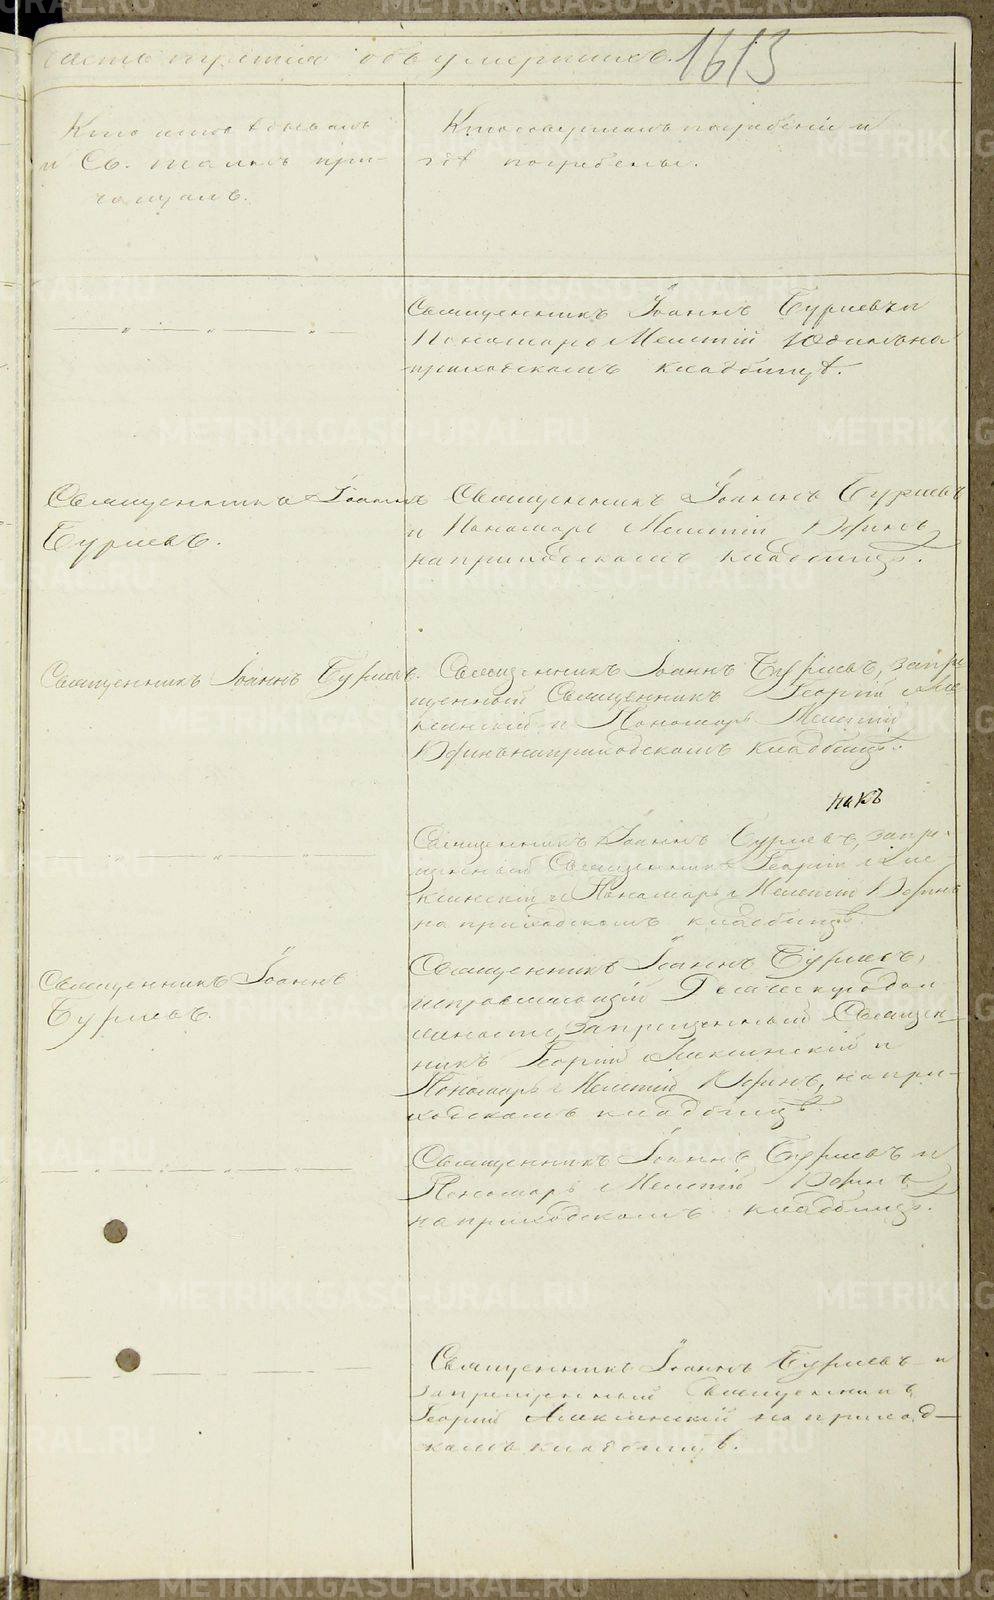 часть третія объ умершихъ.
1613
Кто исповѣдывалъ
и Св. таинъ прі-
чащалъ.
Кто совершалъ погребеніе и
гдѣ погребены.
Священникъ Іоаннъ Бурлевъ и
Пономарь Мелетій Юдинъ на
приходскомъ кладбищѣ.
Священникъ Іоаннъ
Бурлевъ.
Священникъ Іоаннъ Бурлевъ
и Пономарь Мелетій Юдинъ
на приходскомъ кладбищѣ.
Священникъ Іоаннъ Бурлевъ.
Священникъ Іоаннъ Бурлевъ, запре
щенный Священникъ Георгій
и Пономарь Мелетій
Юдинъ на приходскомъ кладбищѣ.
Священникъ Іоаннъ Бурлевъ, запре-
щенный Священникъ Георгій
и Пономарь Мелетій Юдинъ
на приходскомъ кладбищѣ.
Священникъ Іоаннъ
Бурлевъ.
Священникъ Іоаннъ Бурлевъ,
исправляющій дол
жность, запрещенный Священ-
никъ Георгій и
Пономарь Мелетій Юдинъ, на при-
ходскомъ кладбищѣ.
Священникъ Іоаннъ Бурлевъ и
Пономарь Мелетій Юдинъ
на приходскомъ кладбищѣ.
Священникъ Іоаннъ Бурлевъ и
запрещенный Священникъ
Георгій на приход-
скомъ кладбищѣ.
METRIKI.GASO-URAL.RU